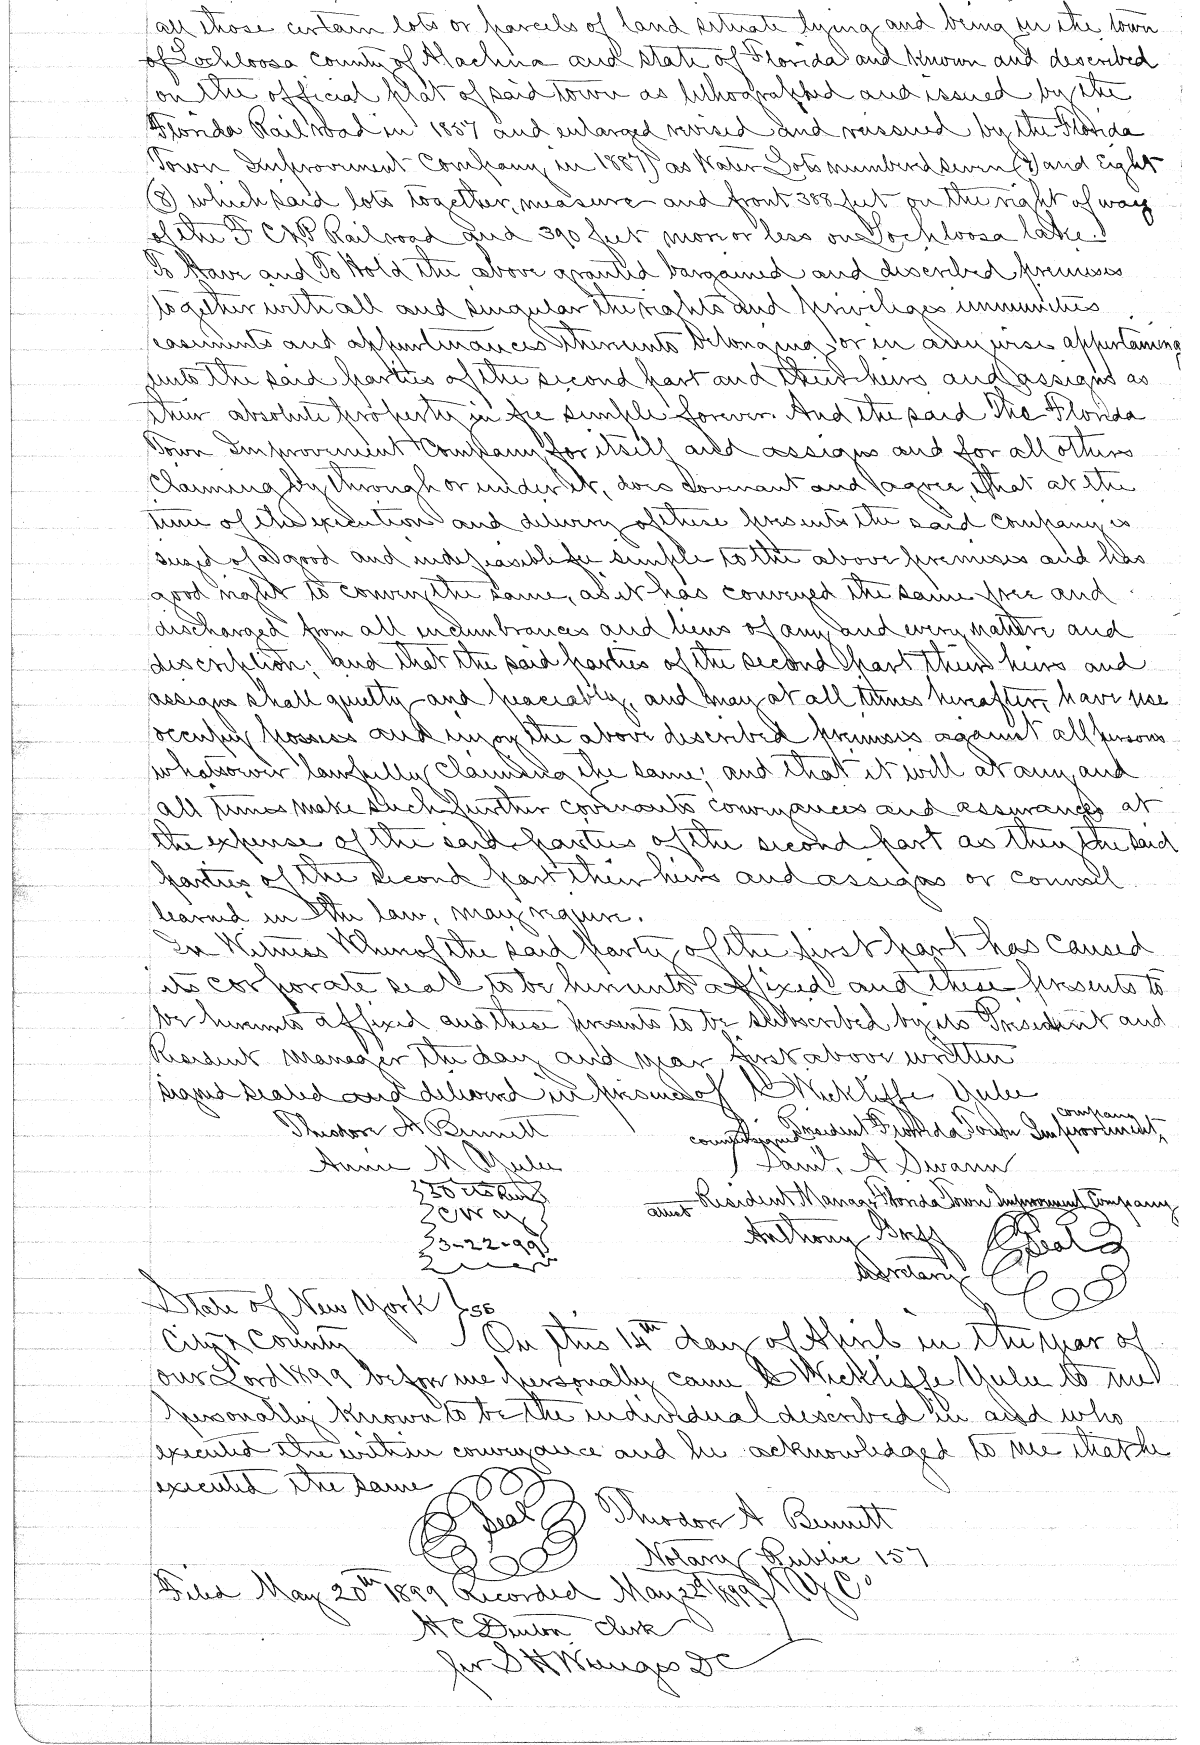 all those certain lots or parcels of land situate lying and being in the town
of Lochloosa county of Alachua and state of Florida and known and described
on the official plat of said town as lithographed and issued by the
Florida Railroad in 1857 and enlarged revised and reissued by the Florida
Town Improvement Company in 1887) as Water Lots numbered seven (7) and Eight
(8) which said lots together, measure and front 388 feet on the right of way
of the F C & P Railroad and 390 feet more or less on Lochloosa lake.
To Have and To Hold the above granted bargained and described premises
together with all and singular the rights and privileges immunities
easements and appurtenances thereunto belonging or in any wise appertaining
unto the said parties of the second part and their heirs and assigns as
their absolute property in fee simple forever. And the said The Florida
Town Improvement Company for itself and assigns and for all others
claiming by through or under it, does covenant and agree, that at the
time of the execution and delivery of these presents the said company is
seized of a good and indefeasible fee simple to the above premises and has
good right to convey the same, as it has conveyed the same free and
discharged from all incumbrances and liens of any and every nature and
description; and that the said parties of the second part their heirs and
assigns shall quietly and peaceably, and may at all times hereafter, have use
occupy possess and enjoy the above described premises against all persons
whatsoever lawfully claiming the same; and that it will at any and
all times make such further covenants conveyances and assurances at
the expense of the said parties of the second part as they the said
parties of the second part their heirs and assigns or counsel
learned in the law, may require.
In Witness Whereof the said party of the first part has caused
its corporate seal to be hereunto affixed and these presents to
be hereunto affixed and these presents to be subscribed by its President and
Resident Manager the day and year first above written
signed sealed and delivered in presence of C Wickliffe Yulee
Theodore A Bennett countersigned President Florida Town Improvement company
Annie M Yulee Saml. A Swann
50 cts Rev attest Resident Manager Florida Town Improvement Company
C W Y Anthony Seal
3-22-99 Secretary
State of New York } ss
City & County On this 14th day of April in the year of
our Lord 1899 before me personally came C Wickliffe Yulee to me
personally known to be the individual described in and who
executed the within conveyance and he acknowledged to me that he
executed the same
Seal Theodore A Bennett
Notary Public 157
Filed May 20th 1899 Recorded May 22d 1899 N Y Co
H C Denton Clerk
per S H Wienges DC